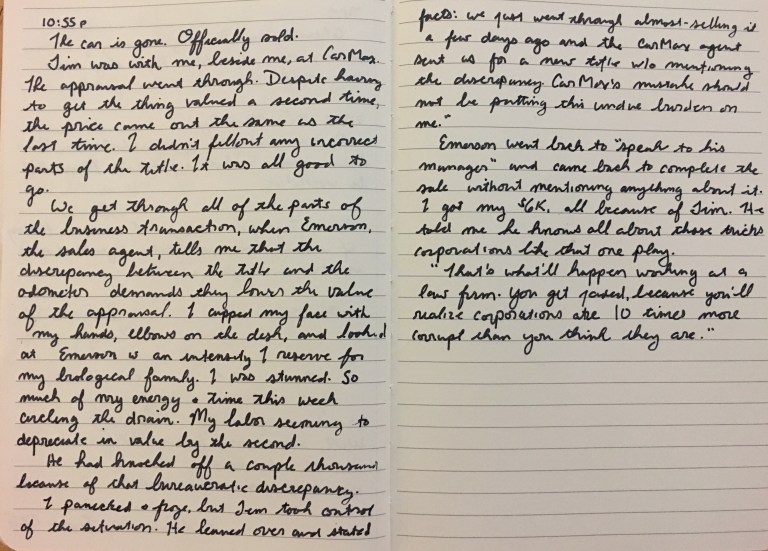 10:55 p
The car is gone. Officially sold.
Jim was with me, beside me, at CarMax.
The appraisal went through. Despite having
to get the thing valued a second time,
the price came out the same as the
last time. I didn't fill out any incorrect
parts of the title. It was all good to
go.
We get through all of the parts of
the business transaction, when Emerson,
the sales agent, tells me that the
discrepancy between the title and the
odometer demands they lower the value
of the appraisal. I cupped my face with
my hands, elbows on the desk, and looked
at Emerson w an intensity I reserve for
my biological family. I was stunned. So
much of my energy + time this week
circling the drain. My labor seeming to
depreciate in value by the second.
He had knocked off a couple thousand
because of that bureaucratic discrepancy.
I panicked + froze, but Jim took control
of the situation. He leaned over and stated
facts: we just went through almost-selling it
a few days ago and the CarMax agent
sent us for a new title w/o mentioning
the discrepancy. CarMax's mistake should
not be putting this undue burden on
me."
Emerson went back to "speak to his
manager" and came back to complete the
sale without mentioning anything about it.
I got my $6K, all because of Jim. He
told me he knows all about those tricks
corporations like that one play.
"That's what'll happen working at a
law firm. You get jaded, because you'll
realize corporations are 10 times more
corrupt than you think they are."